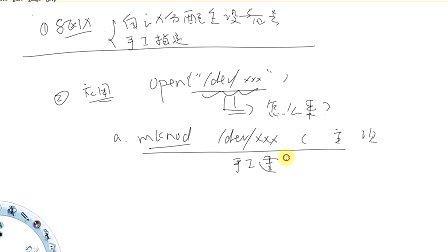 ① 驱动 { 自动分配主设备号
手工指定
② 应用 open("/dev/xxx",
怎么来?
a. mknod /dev/xxx c 主 次
手工建